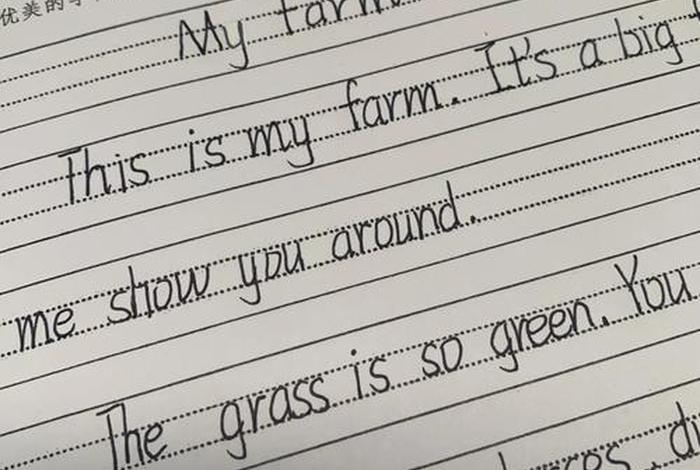 优美的
My farm
This is my farm. It's a big
me show you around.
The grass is so green. You